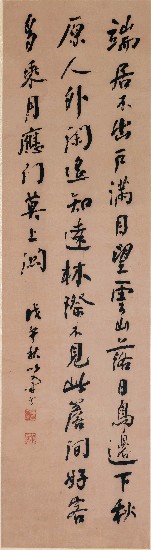 端居不出戶滿目望雲山落日鳥邊下秋
原人外閑遙知遠林際不見此簷間好客
多乘月應門莫上關
戊午秋